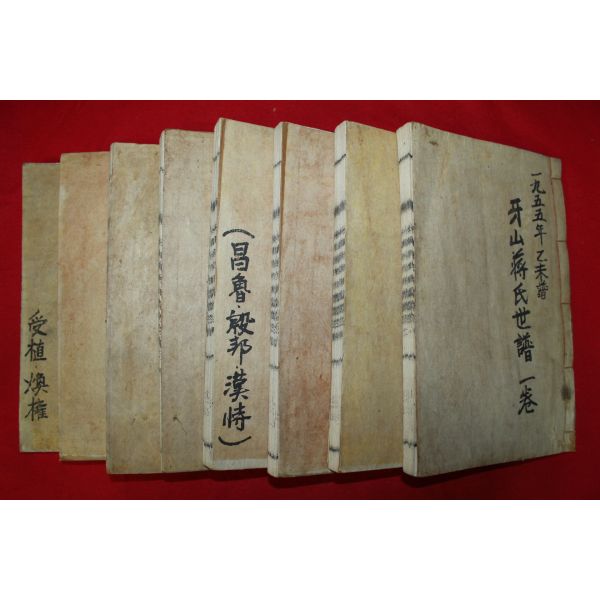 一九五五年 乙未譜
牙山蔣氏世譜 一卷
(昌魯·殷邦·漢時)
受植·煥權